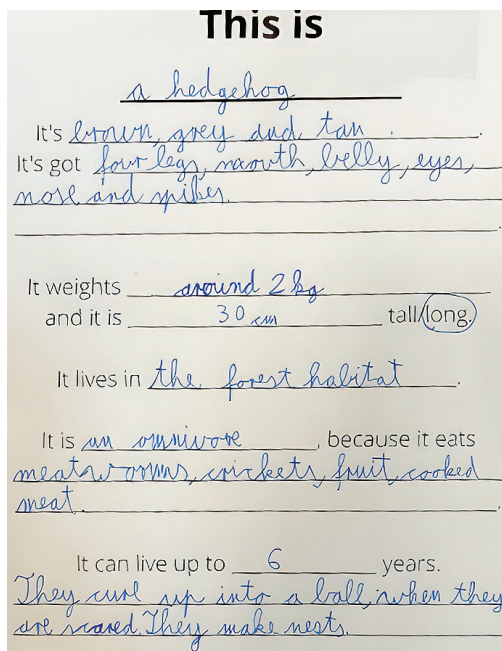 This is
a hedgehog
It's brown, grey and tan.
It's got four legs, mouth, belly, eyes,
nose and spikes.
It weights around 2 kg
and it is 30 cm tall/long.
It lives in the forest habitat.
It is an omnivore, because it eats
meatworms, crickets, fruit, cooked
meat.
It can live up to 6 years.
They curl up into a ball, when they
are scared. They make nests.